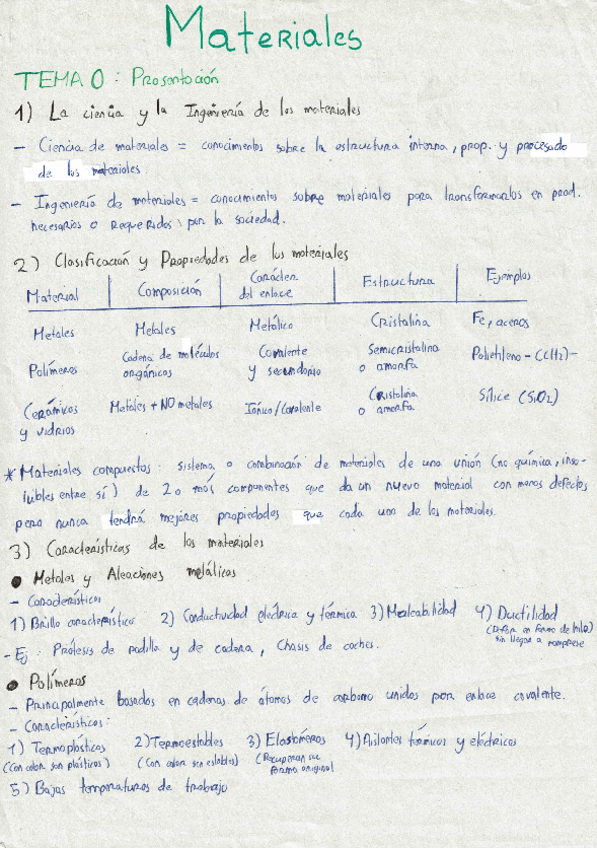 Materiales
TEMA 0: Presentación
1) La ciencia y la Ingeniería de los materiales
- Ciencia de materiales = conocimientos sobre la estructura interna, prop. y procesado
de los materiales
- Ingeniería de materiales = conocimientos sobre materiales para transformarlos en prod.
necesarios o requeridos por la sociedad.
2) Clasificación y Propiedades de los materiales
Material | Composición | Carácter del enlace | Estructura | Ejemplos
Metales Metales Metálico Cristalina Fe, aceros
Polímeros Cadena de moléculas orgánicos Covalente y secundario Semicristalina o amorfa Polietileno -(CH2)-
Cerámicos y vidrios Metales + NO metales Iónico/Covalente Cristalina o amorfa Sílice (SiO2)
* Materiales compuestos: sistema o combinación de materiales de una unión (no química, inso-
lubles entre sí) de 2 o más componentes que da un nuevo material con menos defectos
pero nunca tendrá mejores propiedades que cada uno de los materiales.
3) Características de los materiales
● Metales y Aleaciones metálicas
- Características
1) Brillo característico 2) Conductividad eléctrica y térmica 3) Maleabilidad 4) Ductilidad
(Deformar en forma de hilo)
sin llegar a romperse
- Ej: Prótesis de rodilla y de cadera, Chasis de coches.
● Polímeros
- Principalmente basados en cadenas de átomos de carbono unidos por enlace covalente.
- Características:
1) Termoplásticos 2) Termoestables 3) Elastómeros 4) Aislantes térmicos y eléctricos
(Con calor son plásticos) (Con calor son estables) (Recuperan su
forma original
5) Bajas temperaturas de trabajo